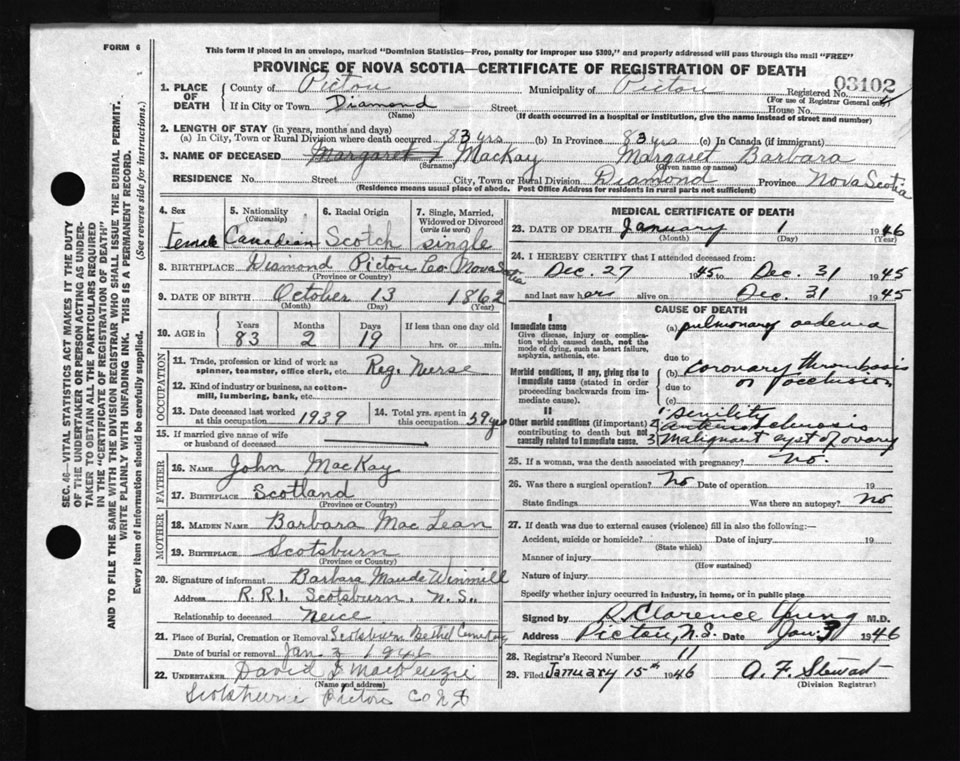 FORM 6
This form if placed in an envelope, marked "Dominion Statistics—Free, penalty for improper use $300," and properly addressed will pass through the mail "FREE"
PROVINCE OF NOVA SCOTIA—CERTIFICATE OF REGISTRATION OF DEATH
03102
1. PLACE OF DEATH County of Pictou Municipality of Pictou Registered No.
(For use of Registrar General only)
If in City or Town Diamond Street House No.
(Name) (If death occurred in a hospital or institution, give the name instead of street and number)
2. LENGTH OF STAY (in years, months and days)
(a) In City, Town or Rural Division where death occurred 83 yrs (b) In Province 83 yrs (c) In Canada (if immigrant)
3. NAME OF DECEASED Margaret MacKay Margaret Barbara
(Surname) (Given name or names)
RESIDENCE No. Street City, Town or Rural Division Diamond Province Nova Scotia
(Residence means usual place of abode. Post Office Address for residents in rural parts not sufficient)
4. Sex 5. Nationality (Citizenship) 6. Racial Origin 7. Single, Married, Widowed or Divorced (write the word)
Female Canadian Scotch single
8. BIRTHPLACE Diamond Pictou Co. Nova Scotia
(Province or Country)
9. DATE OF BIRTH October 13 1862
(Month) (Day) (Year)
10. AGE in Years Months Days If less than one day old
83 2 19 hrs. or min.
OCCUPATION
11. Trade, profession or kind of work as spinner, teamster, office clerk, etc. Reg. Nurse
12. Kind of industry or business, as cotton-mill, lumbering, bank, etc.
13. Date deceased last worked at this occupation 1939 14. Total yrs. spent in this occupation 59 yrs
15. If married give name of wife or husband of deceased
FATHER
16. NAME John MacKay
17. BIRTHPLACE Scotland
(Province or Country)
MOTHER
18. MAIDEN NAME Barbara MacLean
19. BIRTHPLACE Scotsburn
(Province or Country)
20. Signature of informant Barbara Maude Winmill
Address R.R.1. Scotsburn, N.S.
Relationship to deceased Neice
21. Place of Burial, Cremation or Removal Scotsburn Bethel Cemetery
Date of burial or removal Jan. 3 1946
22. UNDERTAKER David MacKenzie
(Name and address)
Scotsburn Pictou Co N.S
MEDICAL CERTIFICATE OF DEATH
23. DATE OF DEATH January 1 1946
(Month) (Day) (Year)
24. I HEREBY CERTIFY that I attended deceased from:
Dec. 27 1945 to Dec. 31 1945
and last saw her alive on Dec. 31 1945
CAUSE OF DEATH
I
Immediate cause (a) pulmonary oedema
Give disease, injury or complication which caused death, not the mode of dying, such as heart failure, asphyxia, asthenia, etc.
due to
Morbid conditions, if any, giving rise to immediate cause (stated in order proceeding backwards from immediate cause).
(b) coronary thrombosis or occlusion
due to
(c)
II
Other morbid conditions (if important) contributing to death but not causally related to immediate cause.
1 Senility
2 arteriosclerosis
3 Malignant cyst of ovary
25. If a woman, was the death associated with pregnancy? No.
26. Was there a surgical operation? No Date of operation 19
State findings Was there an autopsy? No
27. If death was due to external causes (violence) fill in also the following:—
Accident, suicide or homicide? Date of injury 19
(State which)
Manner of injury
(How sustained)
Nature of injury
Specify whether injury occurred in industry, in home, or in public place
Signed by Clarence Young M.D.
Address Pictou, N.S. Date Jan. 1946
28. Registrar's Record Number 11
29. Filed January 15th 1946 A. F. Stewart
(Division Registrar)
SEC. 46—VITAL STATISTICS ACT MAKES IT THE DUTY
OF THE UNDERTAKER OR PERSON ACTING AS UNDER-
TAKER TO OBTAIN ALL THE PARTICULARS REQUIRED
IN THE "CERTIFICATE OF REGISTRATION OF DEATH"
AND TO FILE THE SAME WITH THE DIVISION REGISTRAR WHO SHALL ISSUE THE BURIAL PERMIT.
WRITE PLAINLY WITH UNFADING INK. THIS IS A PERMANENT RECORD.
Every item of information should be carefully supplied. (See reverse side for instructions.)